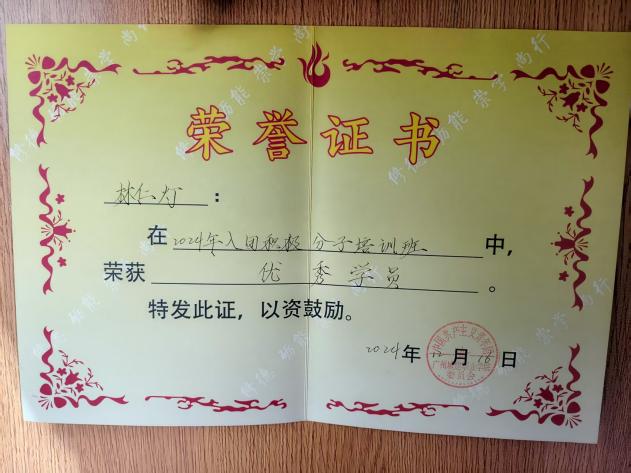 荣誉证书
林仁灯：
在2024年入团积极分子培训班中，
荣获优秀学员。
特发此证，以资鼓励。
2024年 月16日
中国共产主义青年团
委员会
修德 砺能 崇学 尚行